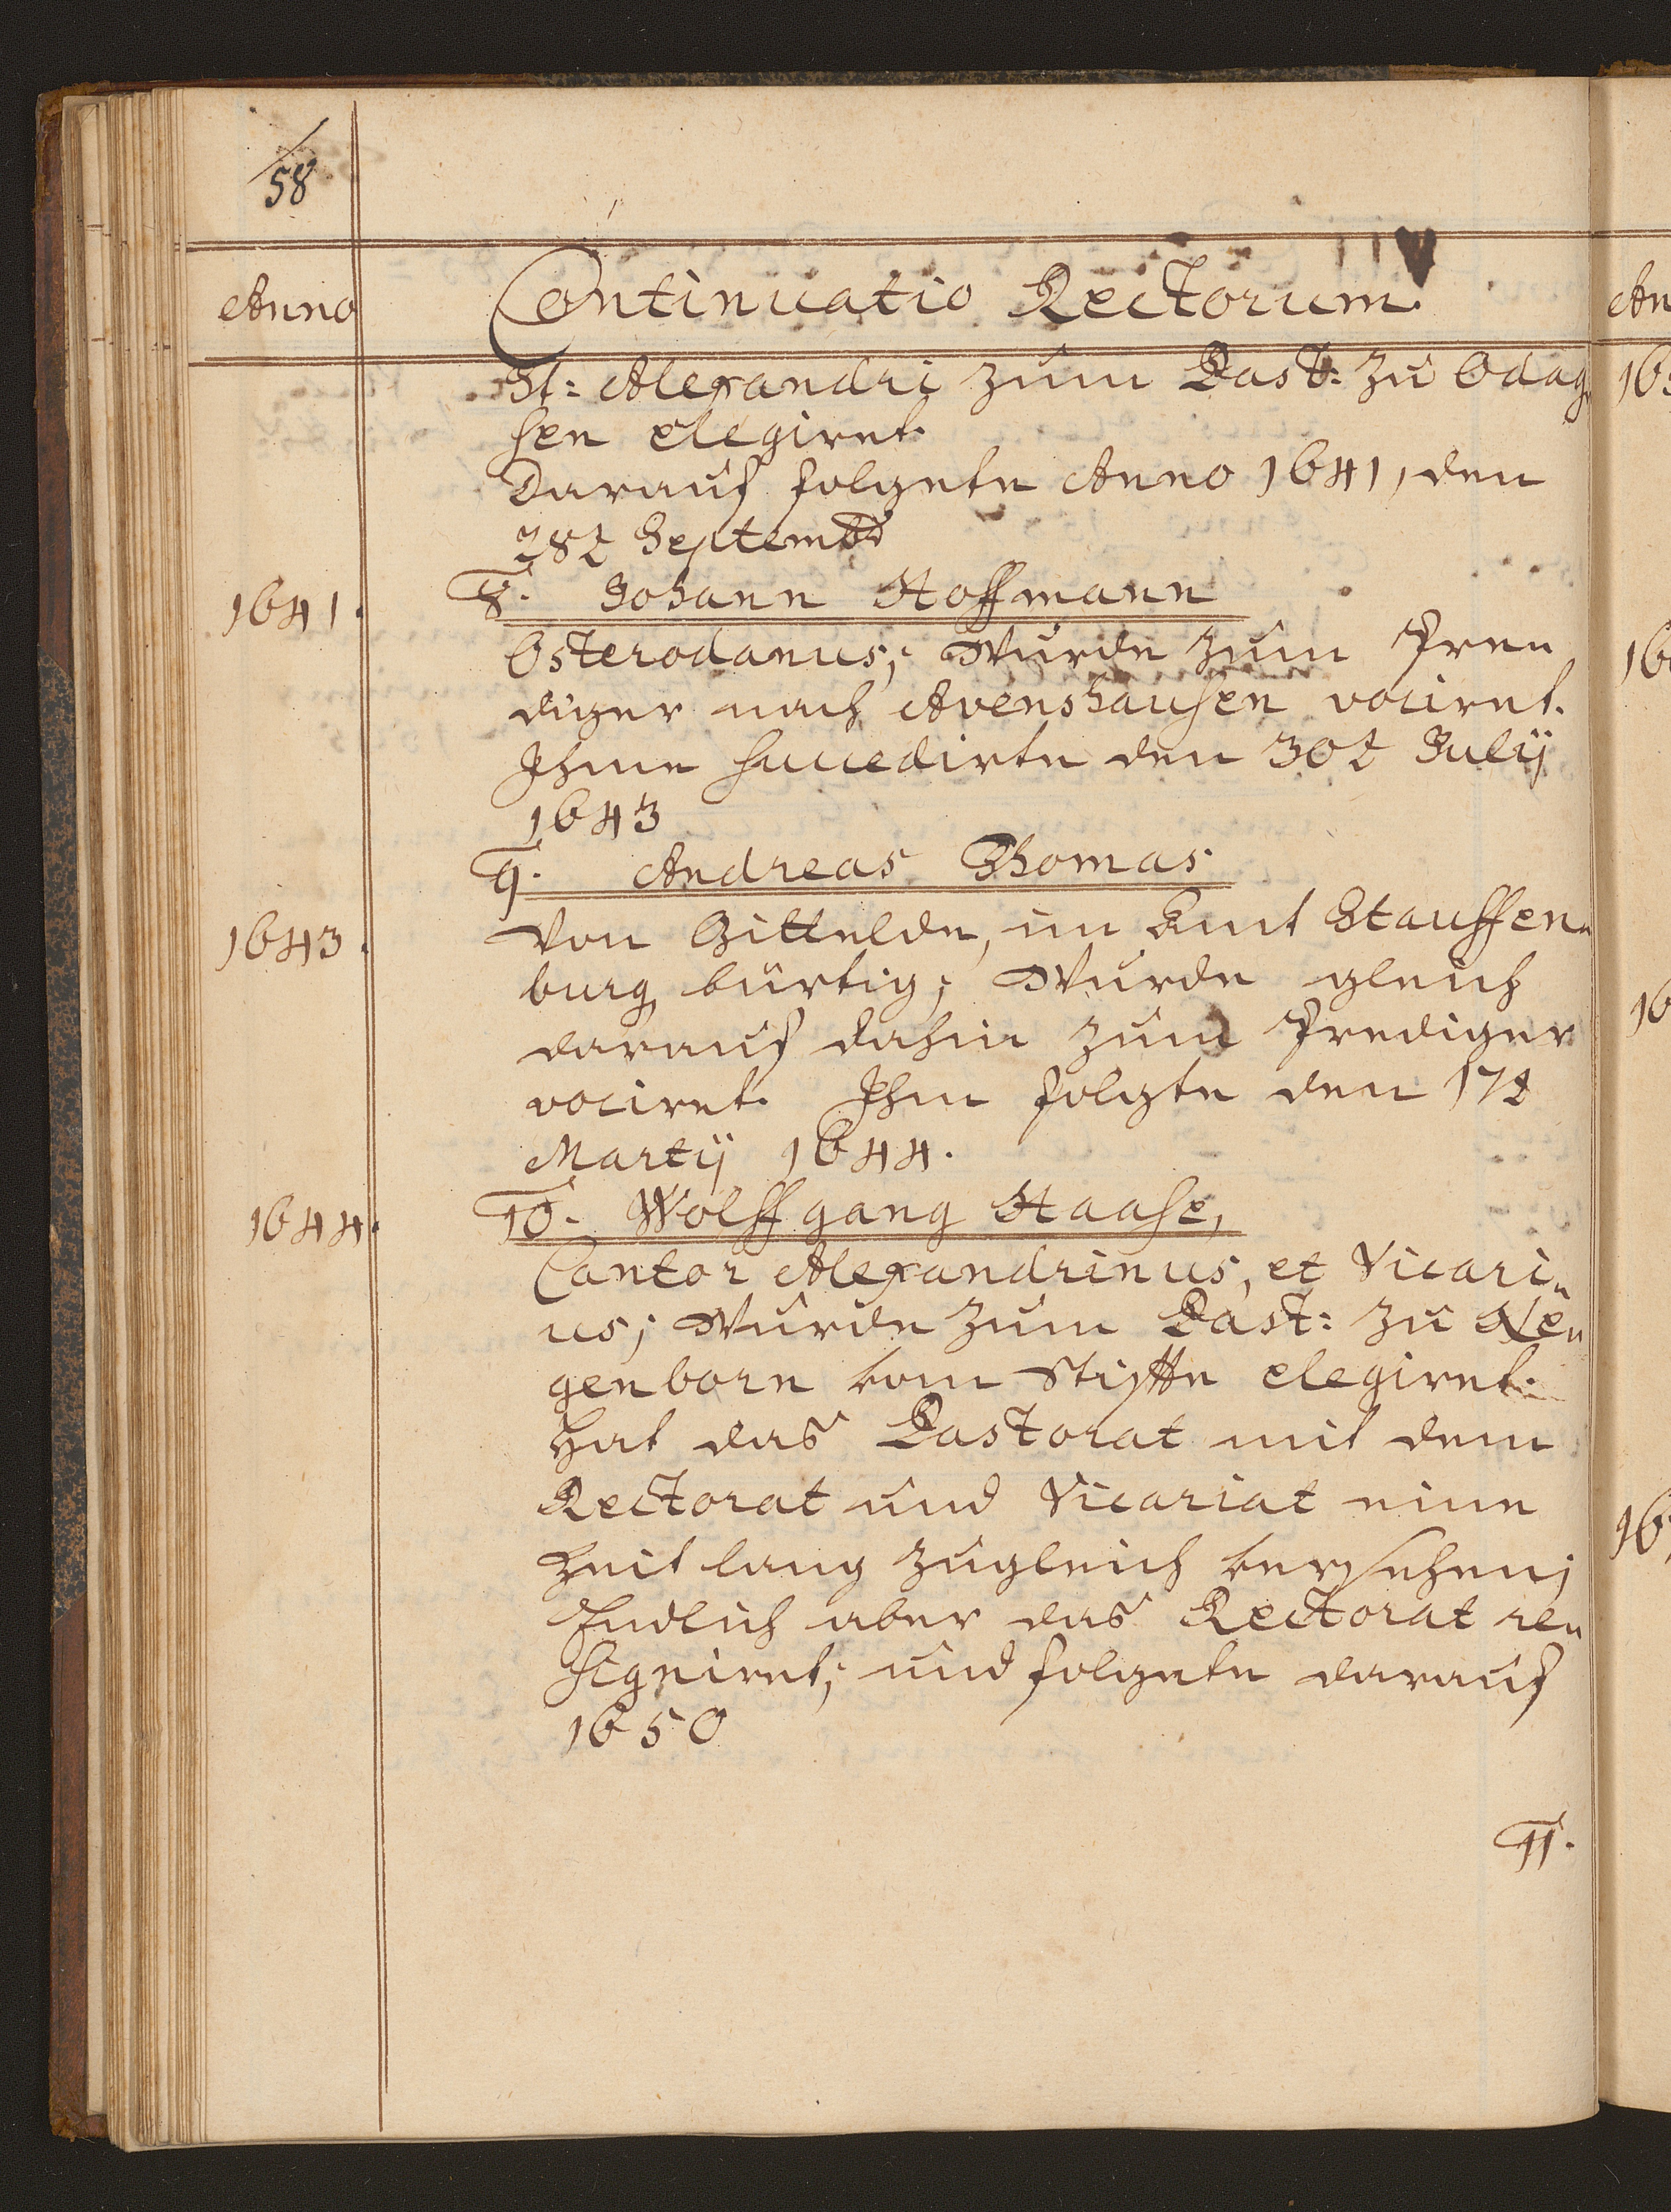 58
Anno Continuatio Rectorum.
St: Alexandri zum Past: zu Odag-
sen elegiret.
Darauf folgete Anno 1641, den
28t Septembr
1641. 8. Johann Hoffmann
Osterodanus; Wurde zum Pre-
diger nach Avenshausen vociret.
Ihme succedirte den 30t Julij
1643
9. Andreas Thomas
1643. Von Gittelde, im Amt Stauffen-
burg bürtig; Wurde gleich
darauf dahin zum Prediger
vociret. Ihm folgte den 17t
Martij 1644.
1644. 10. Wolffgang Haase,
Cantor Alexandrinus, et Vicari-
us; Wurde zum Past: zu Neü-
genborn vom Stiffte elegiret.
Hat das Pastorat mit dem
Rectorat und Vicariat eine
Zeit lang zugleich versehen;
Endlich aber das Rectorat re-
signiret; und folgete darauf
1650
11.
An
16
16
16
16